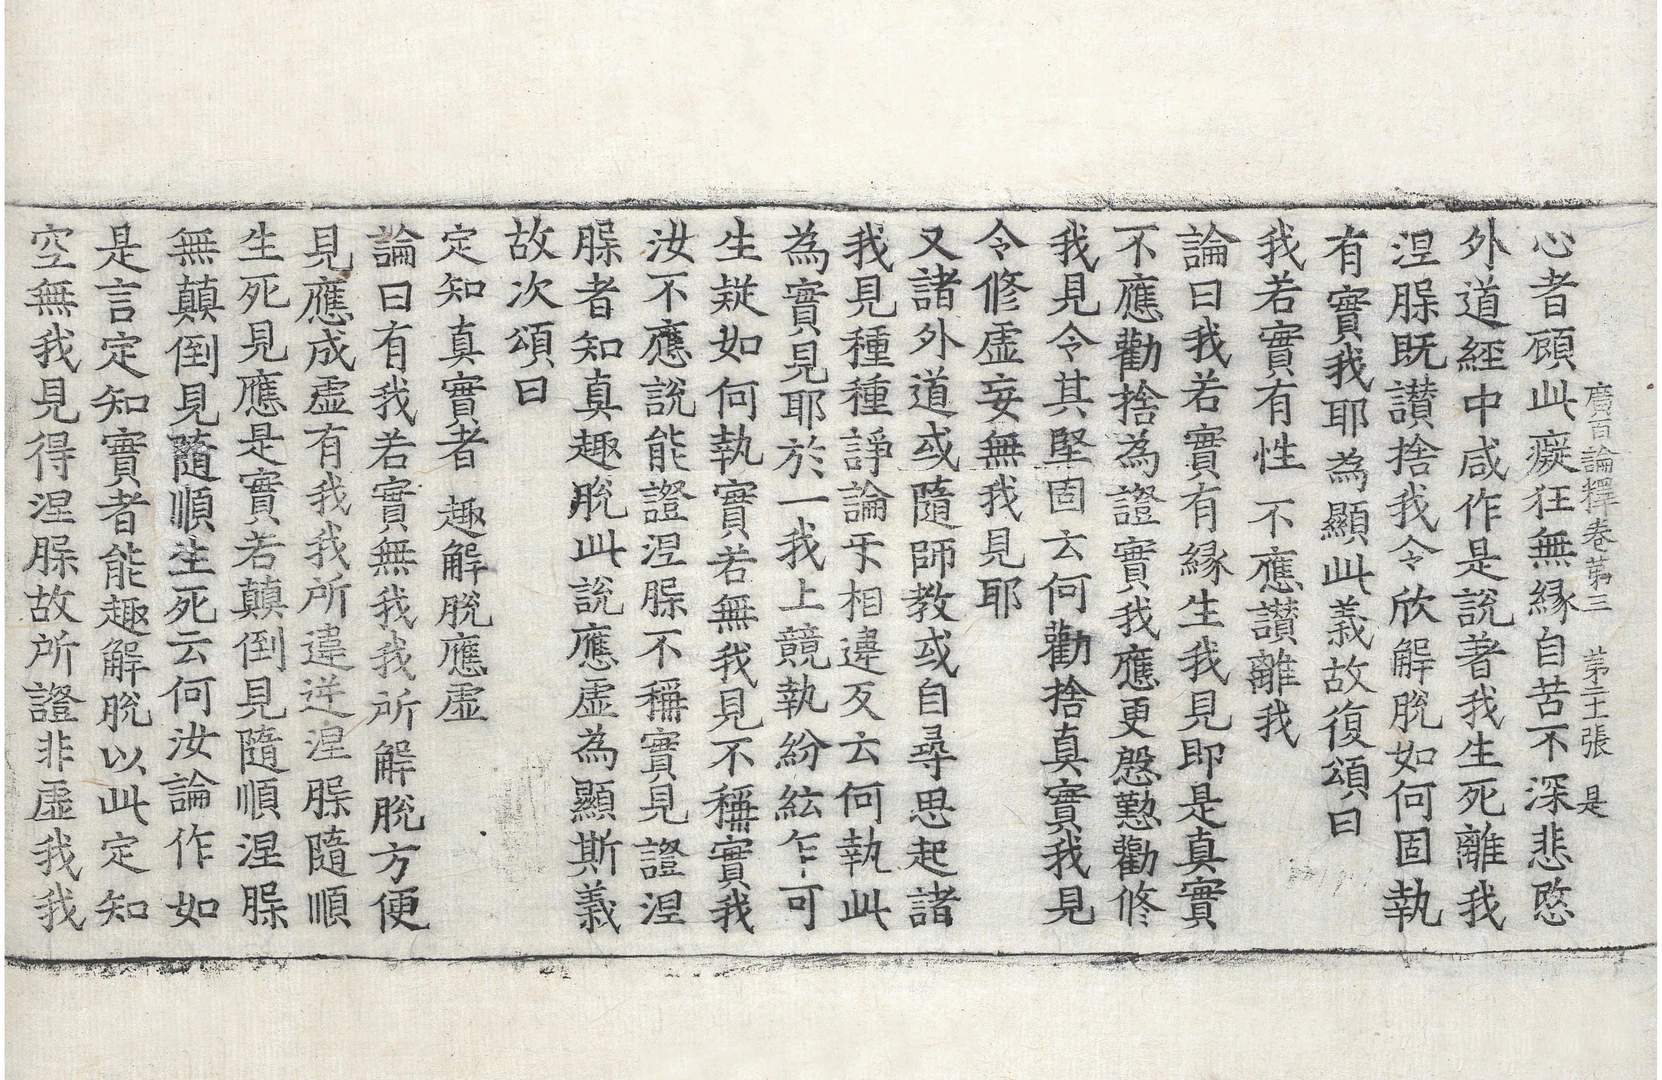 廣百論釋卷苐三　苐二十張　是
心者頋此癡狂無緣自苦不深悲愍
外道經中咸作是說著我生死離我
涅槃既讃捨我令欣解脫如何固執
有實我耶為顯此義故復頌曰
我若實有性　不應讃離我
論曰我若實有緣生我見即是真實
不應勸捨為證實我應更慇懃勸修
我見令其堅固云何勸捨真實我見
令修虛妄無我見耶
又諸外道或隨師教或自尋思起諸
我見種種諍論㸦相違反云何執此
為實見耶於一我上競執紛紜乍可
生疑如何執實若無我見不稱實我
汝不應說能證涅槃不稱實見證涅
槃者知真趣脫此說應虛為顯斯義
故次頌曰
定知真實者　趣解脫應虛
論曰有我若實無我我所解脫方便
見應成虛有我我所違逆涅槃隨順
生死見應是實若顛倒見隨順涅槃
無顛倒見隨順生死云何汝論作如
是言定知實者能趣解脫以此定知
空無我見得涅槃故所證非虛我我